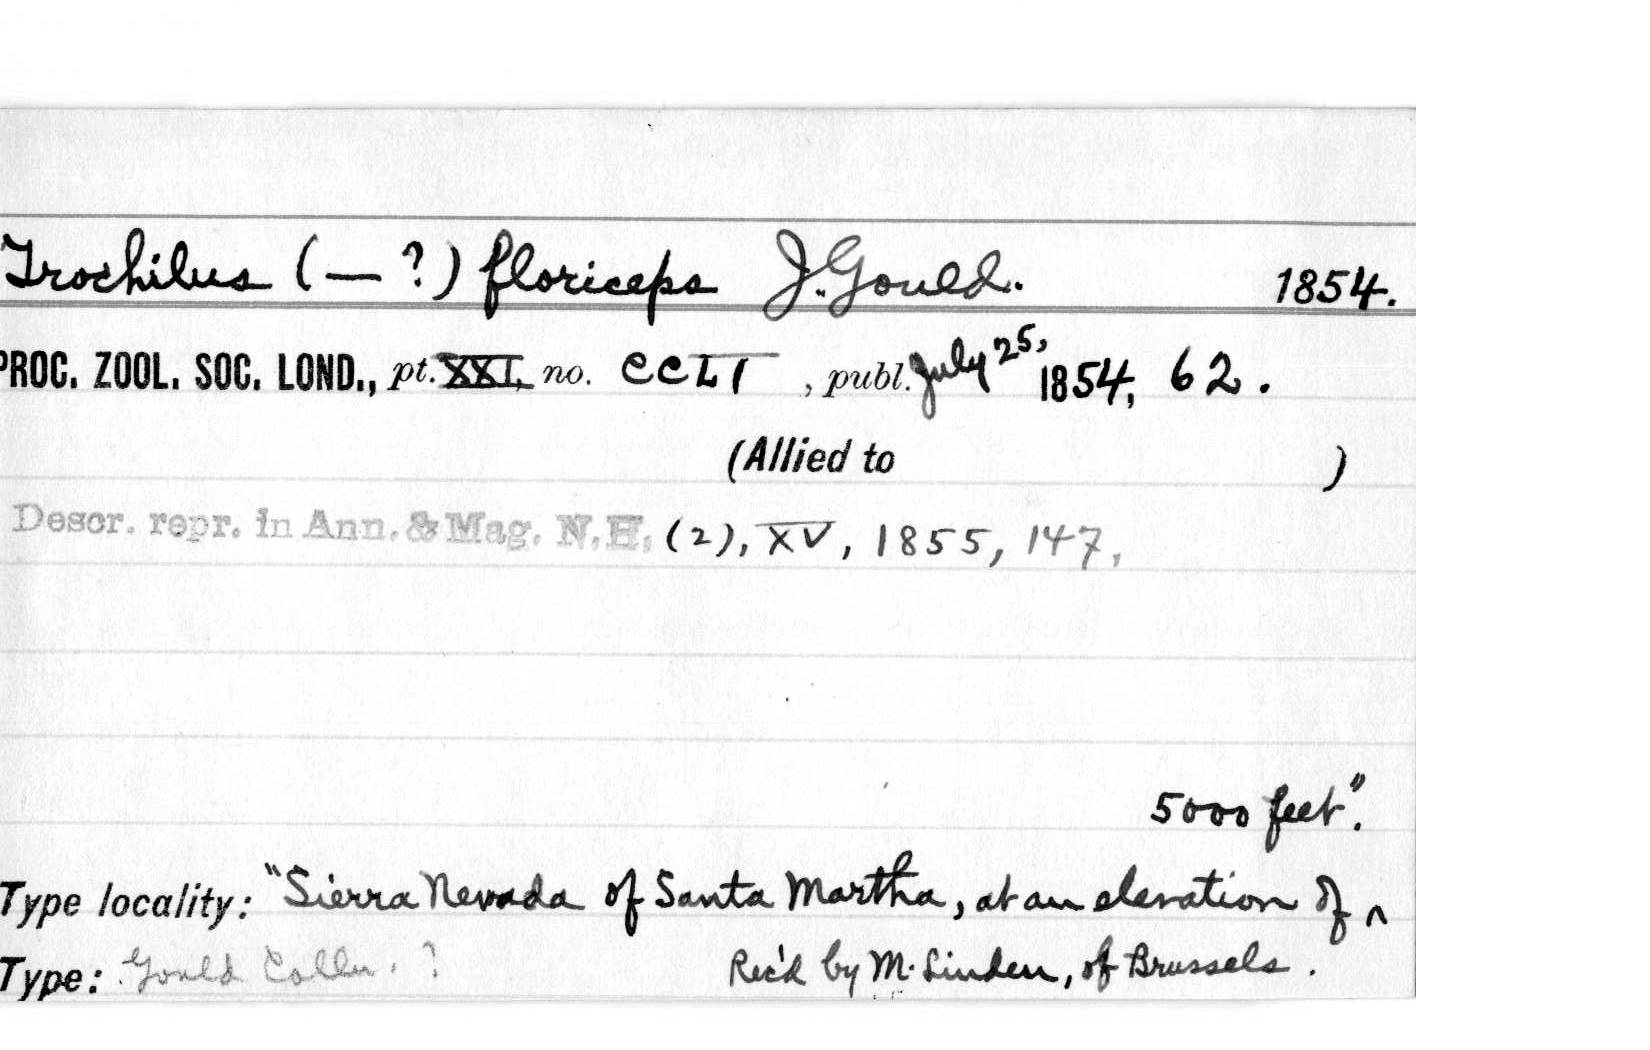 Trochilus (—?) floriceps J. Gould. 1854.
PROC. ZOOL. SOC. LOND., pt. XXI, no. CCLI, publ. July 25, 1854, 62.
(Allied to )
Descr. repr. in Ann. & Mag. N.H. (2), XV, 1855, 147,
5000 feet".
Type locality: "Sierra Nevada of Santa Martha, at an elevation of ^
Type: Gould Colln. ? Rec'd by M. Linden, of Brussels.